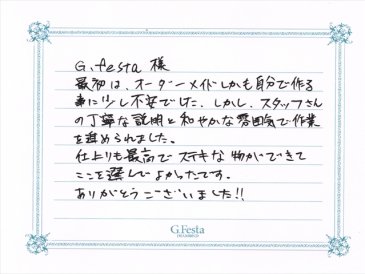 G.festa 様
最初は、オーダーメイドしかも自分で作る
事に少し不安でした。しかし、スタッフさん
の丁寧な説明と和やかな雰囲気で作業
を進められました。
仕上りも最高でステキな物ができて
ここを選んでよかったです。
ありがとうございました!!
G.Festa